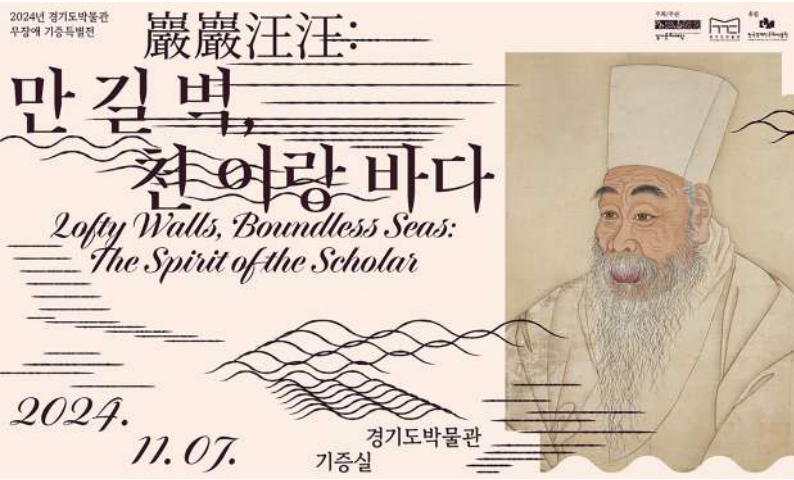 2024년 경기도박물관
무장애 기증특별전
巖巖汪汪:
만 길 벽,
천 이랑 바다
Lofty Walls, Boundless Seas:
The Spirit of the Scholar
2024.
11. 07.
경기도박물관
기증실
주최/주관
후원